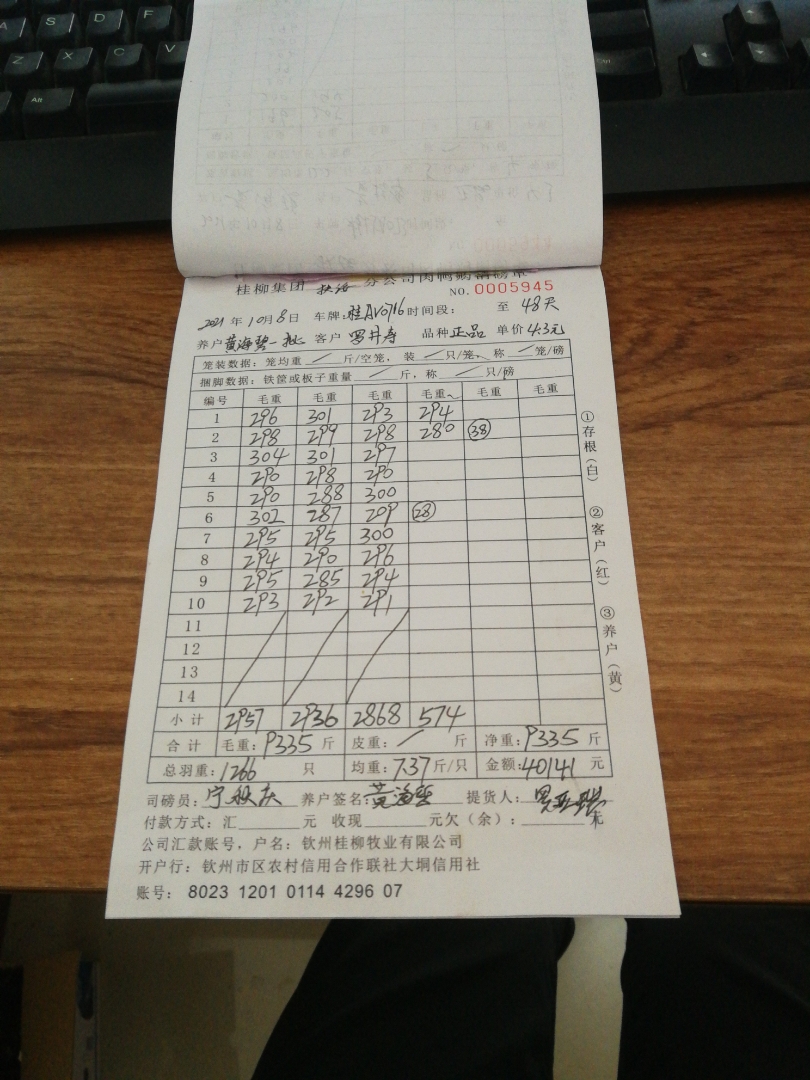 A S D F
Z X C V
Alt
Ctrl
桂柳集团 分公司肉鸭销磅单
NO. 0005945
2021年10月8日 车牌:桂AV0716 时间段: 至 48天
养户 黄海 一批 客户 罗 品种 正品 单价 4.3元
笼装数据: 笼均重 / 斤/空笼, 装 / 只/笼, 称 / 笼/磅
捆脚数据: 铁筐或板子重量 / 斤, 称 / 只/磅
编号 毛重 毛重 毛重 毛重 毛重 毛重
1 296 301 293 294
2 298 299 298 280 (38)
3 304 301 297
4 290 298 290
5 290 288 300
6 302 287 209 (28)
7 295 295 300
8 294 290 296
9 295 285 294
10 293 292 291
11
12
13
14
小计 2957 2936 2868 574
合计 毛重: 9335 斤 皮重: / 斤 净重: 9335 斤
总羽重: 1266 只 均重: 7.37 斤/只 金额: 40141 元
①存根(白)
②客户(红)
③养户(黄)
司磅员: 宁 庆 养户签名: 黄海 提货人:
付款方式: 汇 元 收现 元欠(余): 元
公司汇款账号, 户名: 钦州桂柳牧业有限公司
开户行: 钦州市区农村信用合作联社大垌信用社
账号: 8023 1201 0114 4296 07